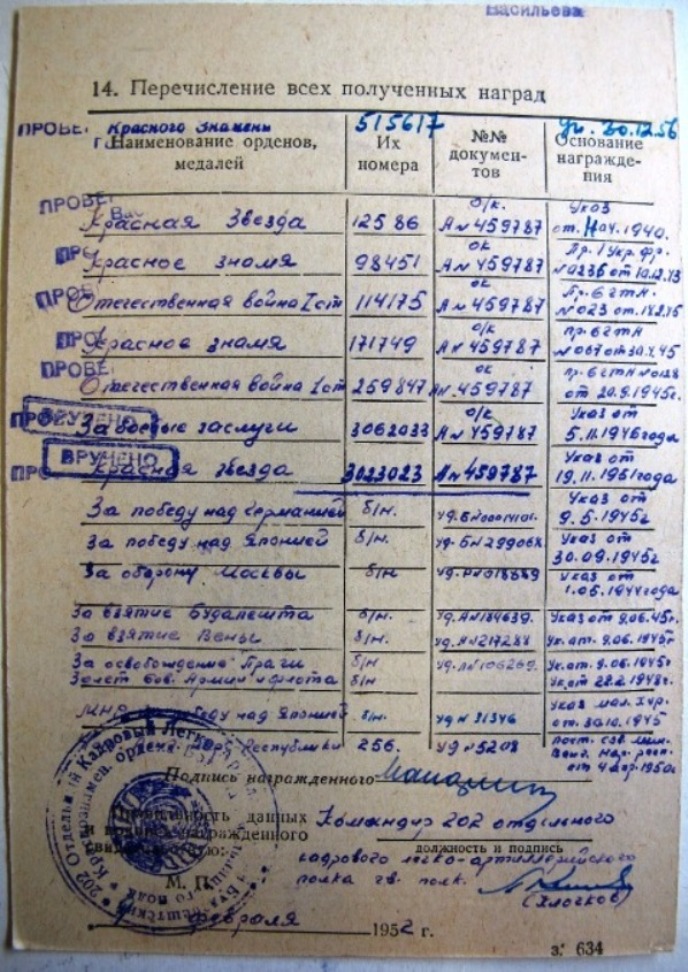 Васильева
14. Перечисление всех полученных наград
ПРОВЕ Красного Знамени 515617 Ук. 30.12.56
Наименование орденов, медалей
Их номера
№№ документов
Основание награждения
ПРОВЕ Красная Звезда 12586 о/к. А № 459787 Указ от. 1940.
ПРО Красное знамя 98451 ок А № 459787 Пр. 1 Укр. фр. №0236 от 10.12.43
ПРОВ Отечественная война I ст 114175 ок А № 459787 Пр. 6 гт А. №023 от.
ПРО Красное знамя 171749 о/к А № 459787 пр. 6 гт А №067 от 45
ПРОВЕ Отечественная война I ст 259847 ок А №. 459787 пр. 6 гт А №0128 от 20.9.1945г.
ПРОВ ВРУЧЕНО За боевые заслуги 3062033 о/к А № 459787 Указ от 5.11.1946 года
ПРО ВРУЧЕНО Красная звезда 3023023 А № 459787 Указ от 19.11.1951 года
За победу над Германией б/н. Указ от 9.5.1945г
За победу над Японией б/н. Указ от 30.09.1945г
За оборону Москвы б/н указ от 1.05.1944 года
За взятие Будапешта б/н. уд. А№184639. Указ от 9.06.45г.
За взятие Вены б/н. уд. А№217288 Ук. от. 9.06.1945г
За освобождение Праги б/н. Ук. от. 9.06.1945г
30 лет Сов. Армии и флота б/н Ук. от 22.2.1948г.
МНР За победу над Японией б/н. уд № 31346 Указ мал. хур. от. 30.10.1945
Республики 256. уд № 5208 от 4 апр. 1950г
Подпись награжденного
Правильность данных
и подписи награжденного
свидетельствую:
Командир 202 отдельного
должность и подпись
кадрового легко-артиллерийского
полка гв. полк.
М. П.
(Клочков)
февраля 1952 г.
202 Отдельный Кадровый Легко
з. 634